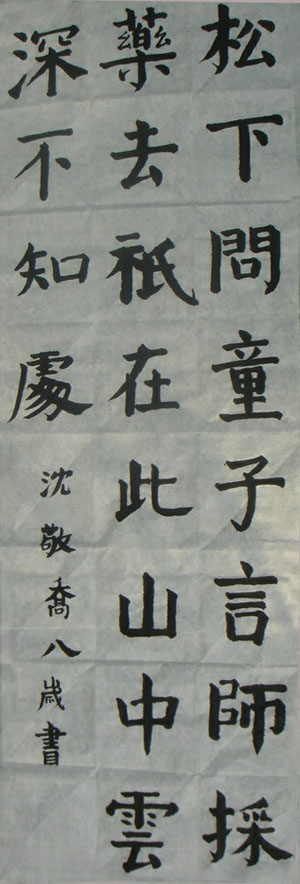 松下問童子言師採
藥去祇在此山中雲
深不知處
沈敬喬八歲書